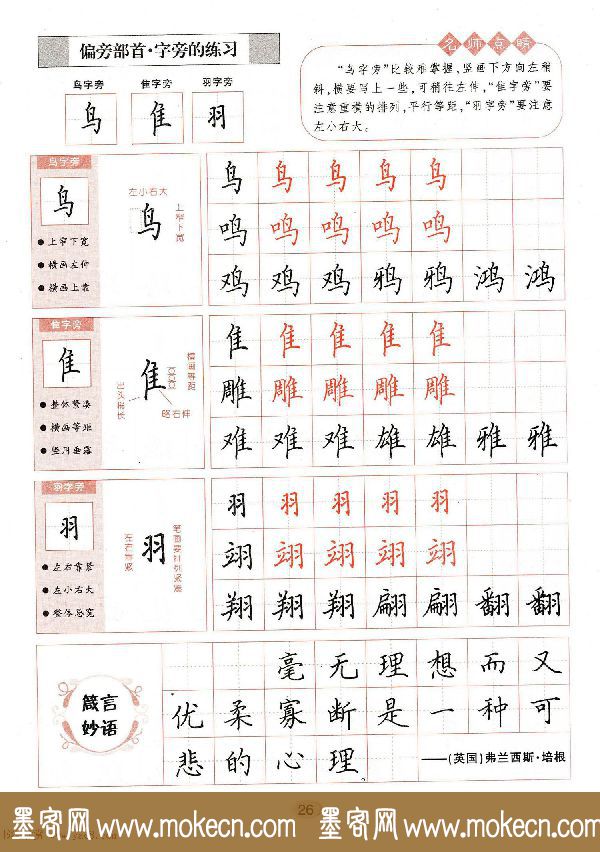 偏旁部首·字旁的练习
名师点睛
鸟字旁 隹字旁 羽字旁
鸟 隹 羽
“鸟字旁”比较难掌握,竖画下方向左稍
斜,横要写上一些,可稍往左伸,“隹字旁”要
注意重横的排列,平行等距,“羽字旁”要注意
左小右大。
鸟字旁
鸟
●上窄下宽
●横画左伸
●横画上靠
左小右大
鸟
上窄下宽
鸟 鸟 鸟 鸟 鸟
鸣 鸣 鸣 鸣 鸣
鸡 鸡 鸡 鸦 鸦 鸿 鸿
隹字旁
隹
●整体紧凑
●横画等距
●竖用垂露
隹
横画等距
出头稍长
略右伸
隹 隹 隹 隹 隹
雕 雕 雕 雕 雕
难 难 难 雄 雄 雅 雅
羽字旁
羽
●左右靠紧
●左小右大
●整体忌宽
左右靠紧
羽
羽 羽 羽 羽 羽
翊 翊 翊 翊 翊
翔 翔 翔 翩 翩 翻 翻
箴言
妙语
毫无理想而又
优柔寡断是一种可
悲的心理
——(英国)弗兰西斯·培根
26
墨客网 www.mokecn.com 墨客网 www.mokecn.com